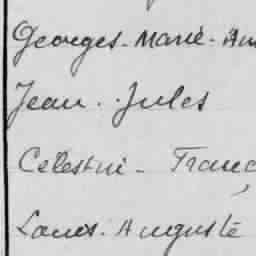 Georges-Marie-Au
Jean-Jules
Célestin-Franç
Louis-Auguste